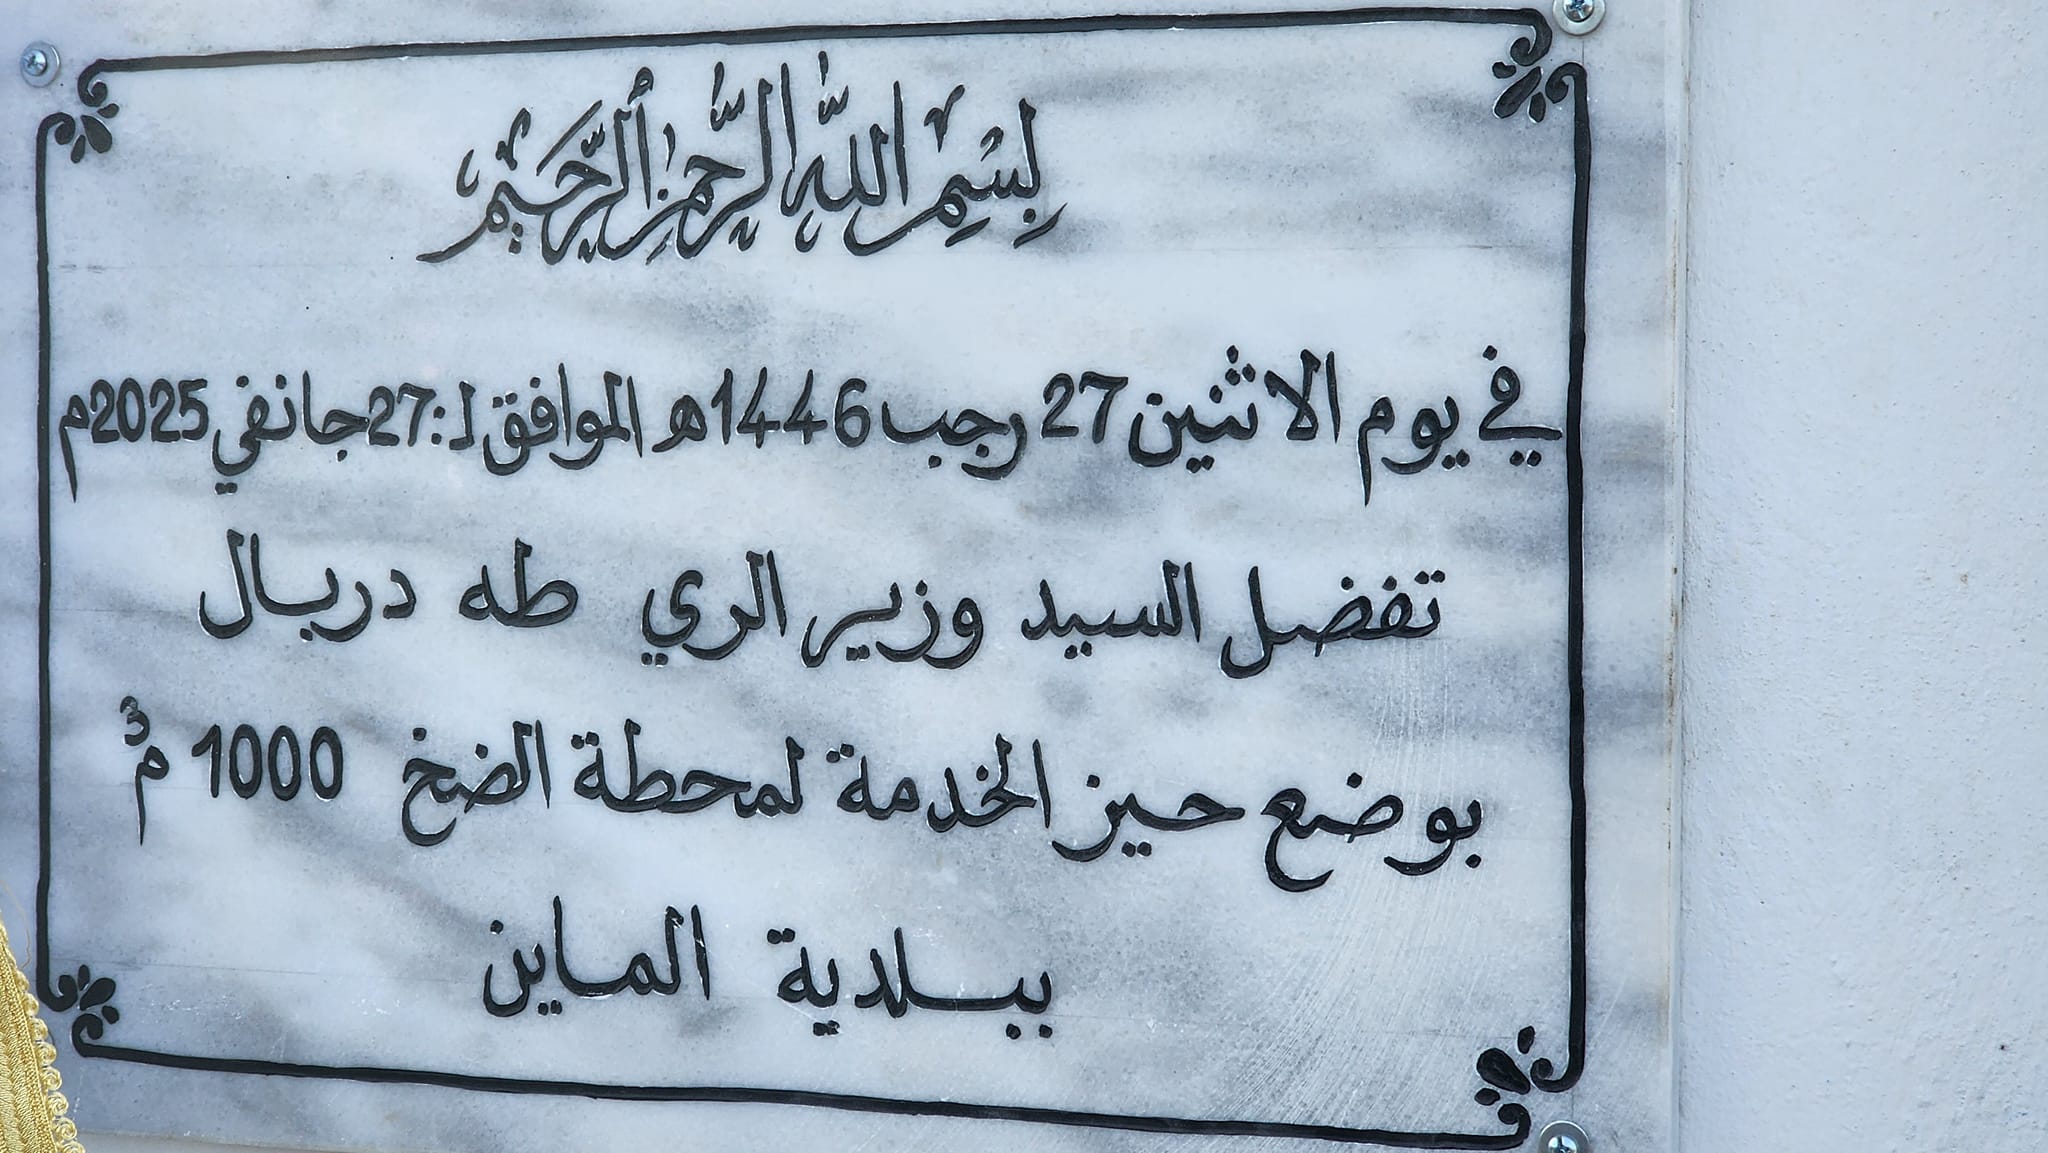 بِسْمِ اللَّهِ الرَّحْمٰنِ الرَّحِيمِ
في يوم الاثنين 27 رجب 1446هـ الموافق لـ:27جانفي2025م
تفضل السيد وزير الري طه دربال
بوضع حيز الخدمة لمحطة الضخ 1000 م³
ببلدية الماين